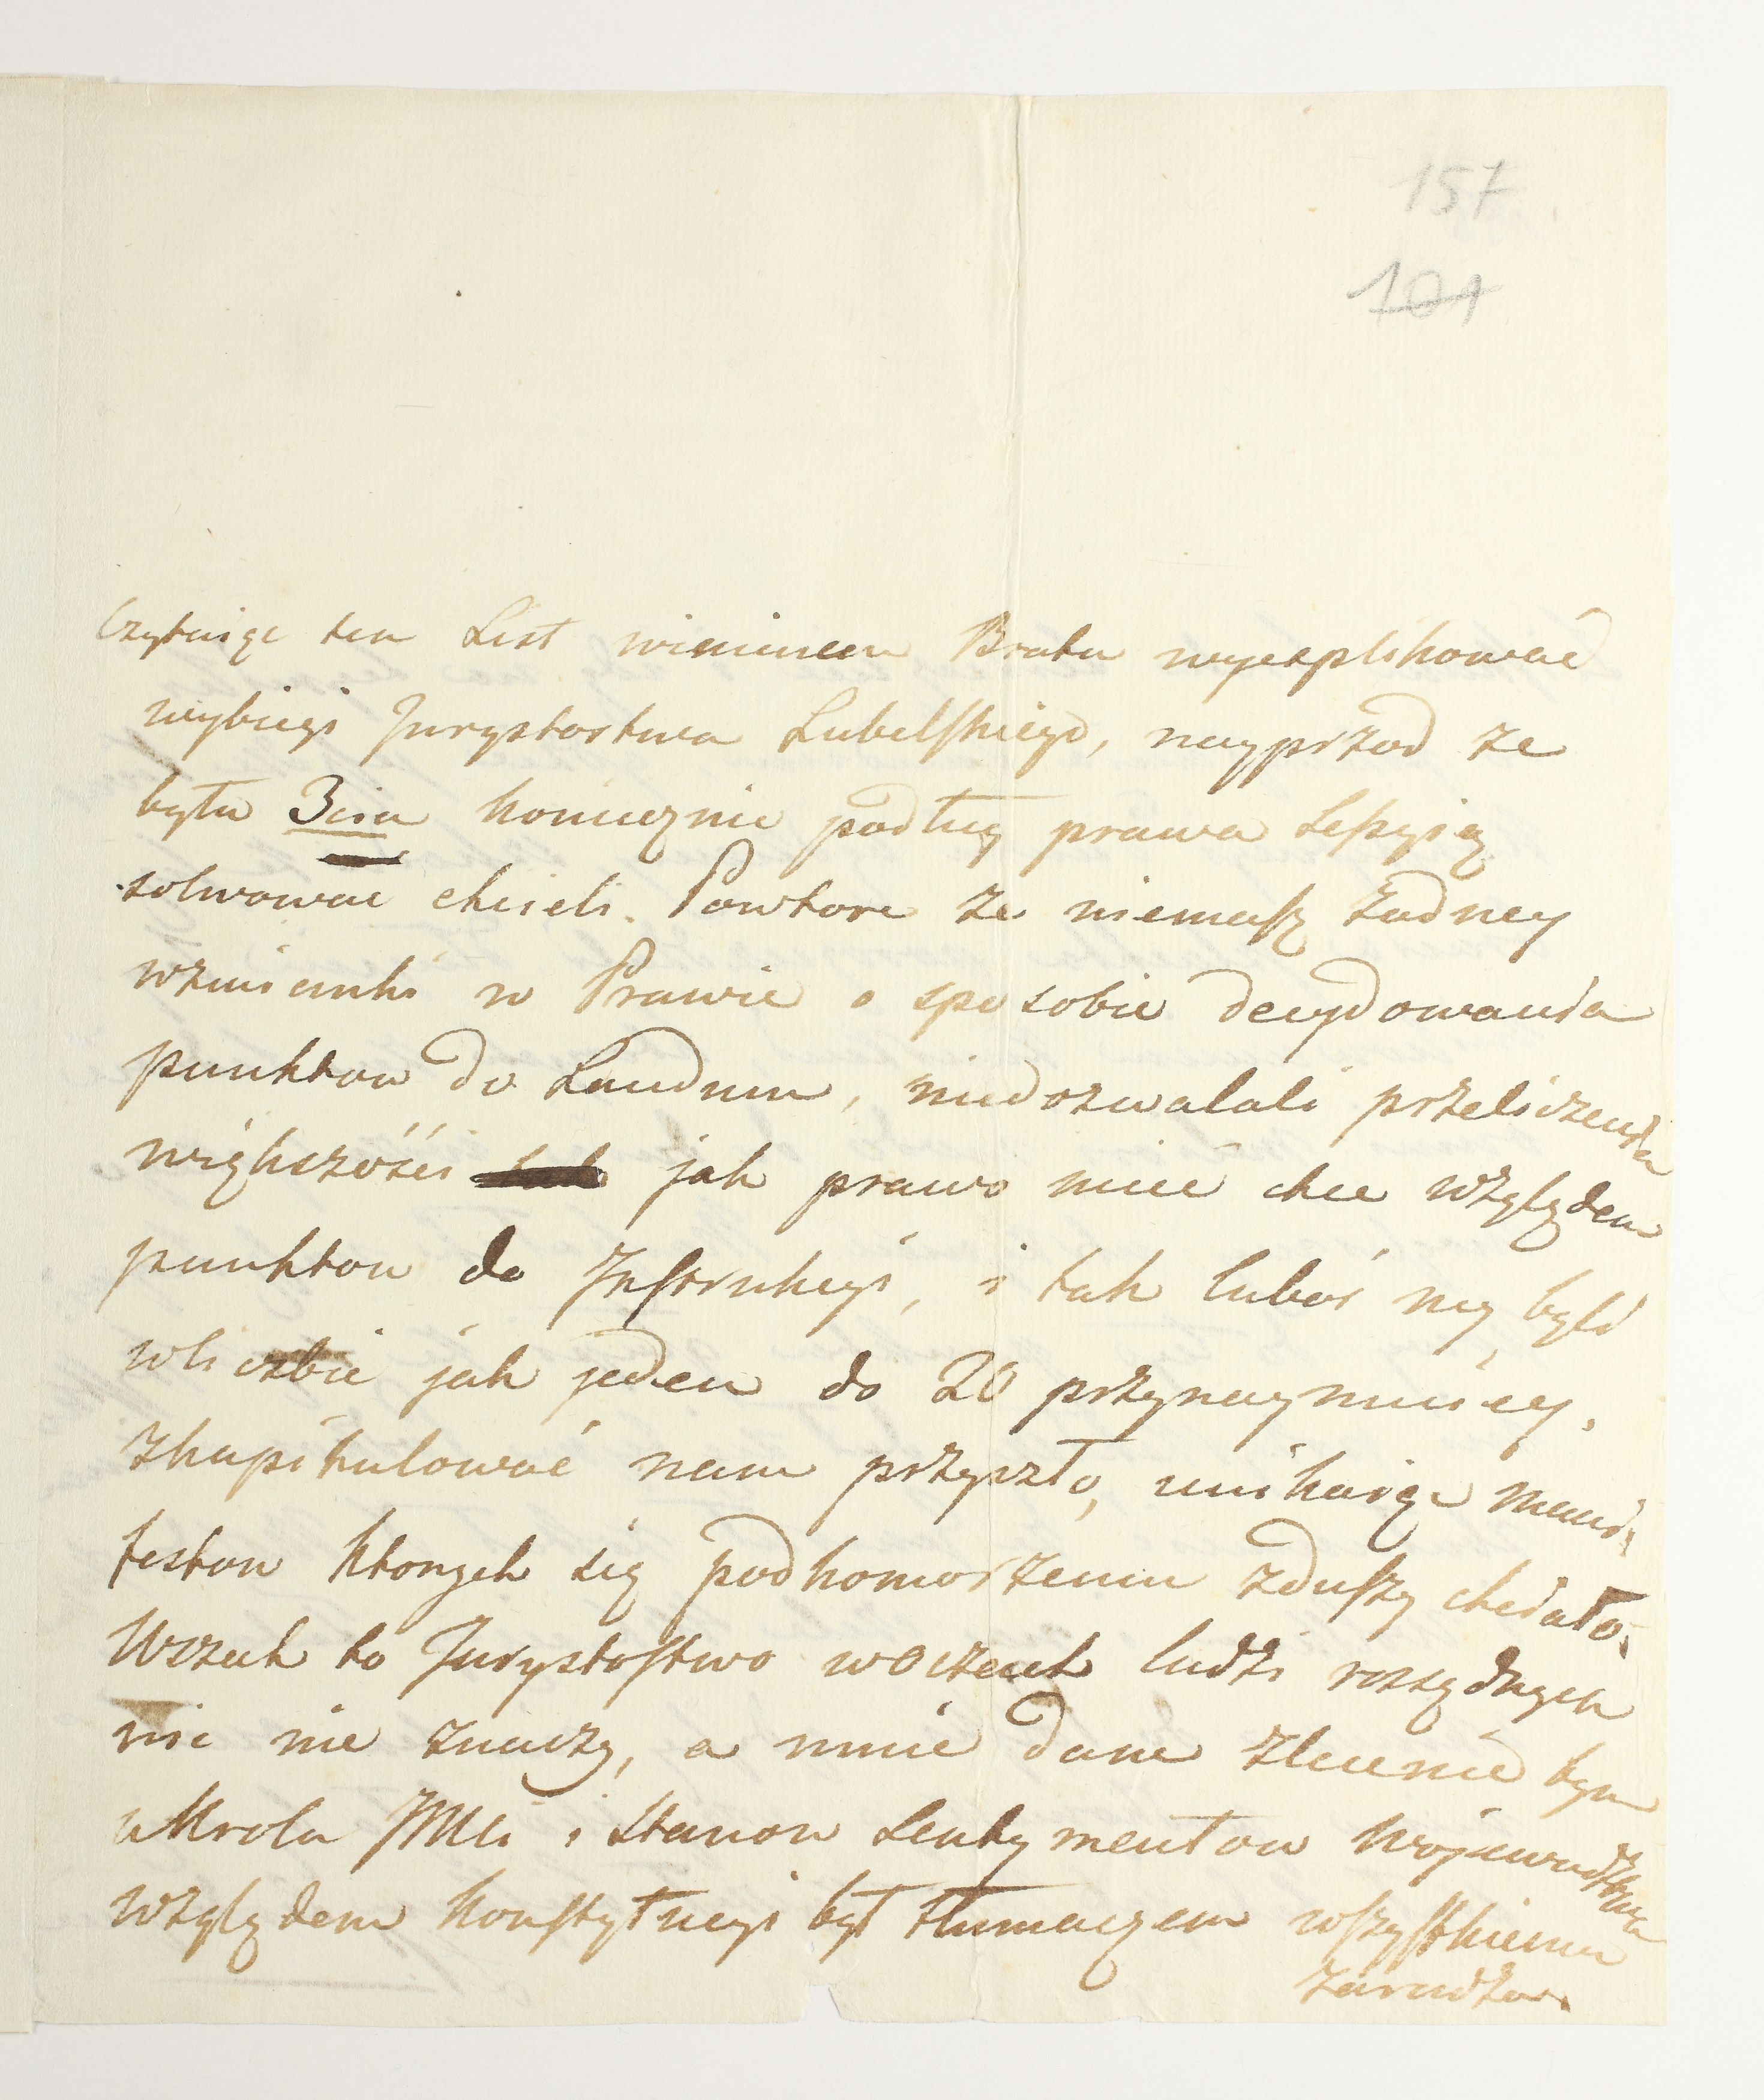 157
101
Czytaiąc ten List winienem Bratu wyexplikować
wybiegi Jurystostwa Lubelskiego, nayprzod ze
była 3cia koniecznie podług prawa Sessyią
solwowac chcieli. Powtore ze niemasz żadney
wzmianki w Prawie o sposobie decydowania
punktow do Laudum, niedozwalali przeliczenia
większości jak prawo mieć chce względem
punktow do Instrukcyi, i tak luboś my byli
wliczbie jak jeden do 20 przynaymniey,
zkapitulować nam przyszło, unikaiąc mani,
festow ktorych się podkomorzemu zduszy chciało.
Wszak to Jurystostwo woczach ludzi rozsądnych
nic nie znaczy, a mnie dane zlecenie bym
u Krola JMci i Stanow Sentymentow Woiewodztwa
względem Konstytucyi był tłumaczem wszystkiemu
zaradza.